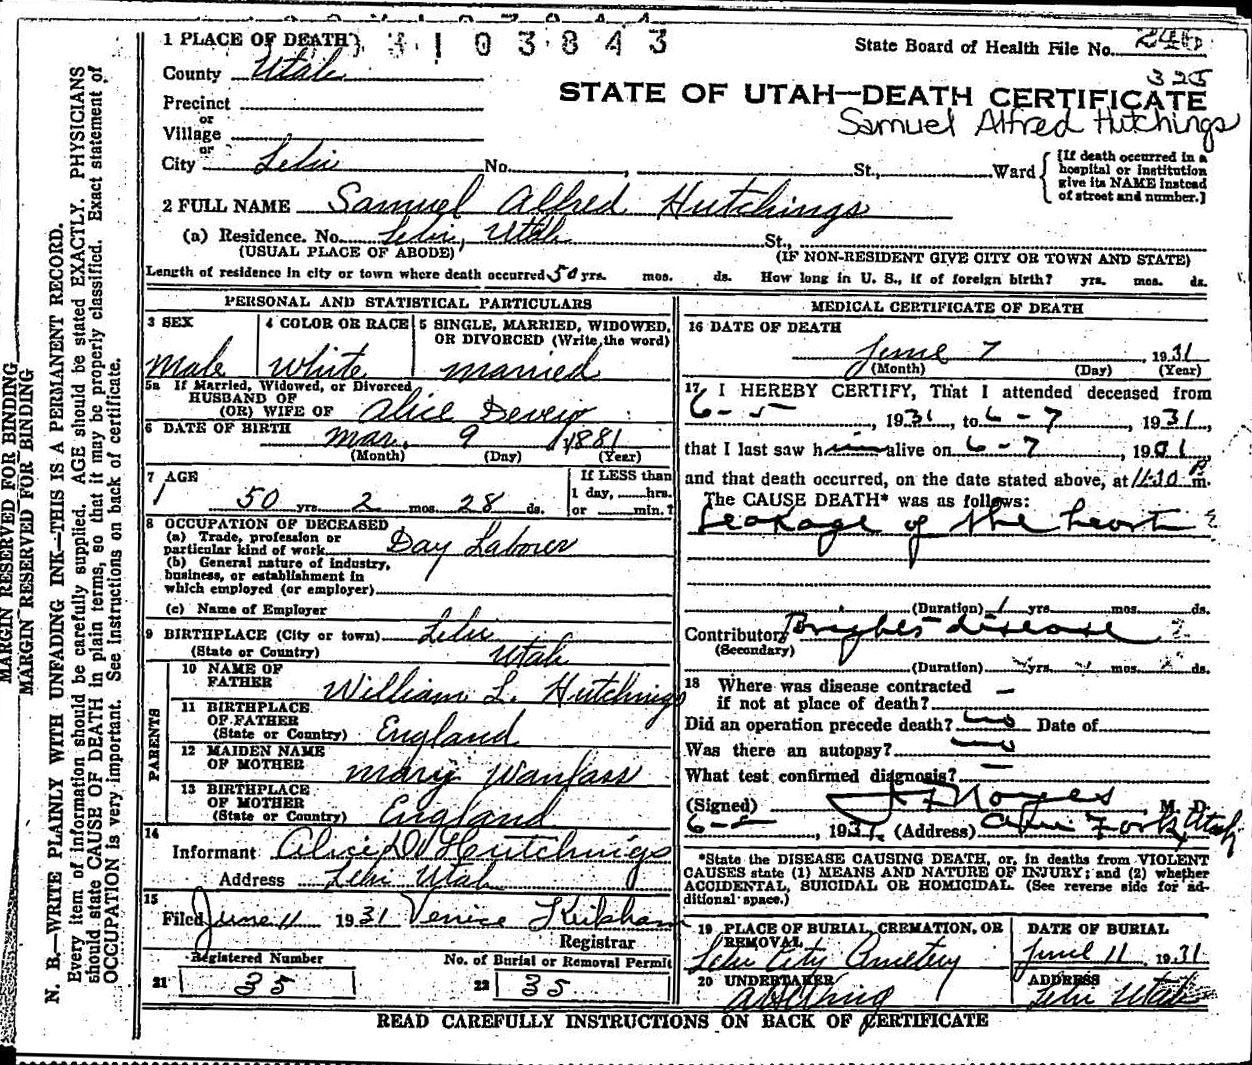 3103843
1 PLACE OF DEATH
State Board of Health File No.
County Utah
325
Precinct
STATE OF UTAH—DEATH CERTIFICATE
or
Samuel Alfred Hutchings
Village
or
City Lehi No. , St., Ward
[If death occurred in a hospital or institution give its NAME instead of street and number.]
2 FULL NAME Samuel Alfred Hutchings
(a) Residence. No. Lehi, Utah St.,
(USUAL PLACE OF ABODE) (IF NON-RESIDENT GIVE CITY OR TOWN AND STATE)
Length of residence in city or town where death occurred 50 yrs. mos. ds. How long in U. S., if of foreign birth? yrs. mos. ds.
PERSONAL AND STATISTICAL PARTICULARS
3 SEX
Male
4 COLOR OR RACE
White
5 SINGLE, MARRIED, WIDOWED,
OR DIVORCED (Write the word)
married
5a If Married, Widowed, or Divorced
HUSBAND OF
(OR) WIFE OF Alice
6 DATE OF BIRTH Mar. 9 1881
(Month) (Day) (Year)
7 AGE
50 yrs. 2 mos. 28 ds.
If LESS than
1 day, hrs.
or min.?
8 OCCUPATION OF DECEASED
(a) Trade, profession or
particular kind of work Day Laborer
(b) General nature of industry,
business, or establishment in
which employed (or employer)
(c) Name of Employer
9 BIRTHPLACE (City or town) Lehi
(State or Country) Utah
PARENTS
10 NAME OF
FATHER William L. Hutchings
11 BIRTHPLACE
OF FATHER
(State or Country) England
12 MAIDEN NAME
OF MOTHER Mary Wanlass
13 BIRTHPLACE
OF MOTHER
(State or Country) England
14
Informant Alice D. Hutchings
Address Lehi Utah
15
Filed June 11 1931 Venice
Registrar
Registered Number
21 35
No. of Burial or Removal Permit
22 35
MEDICAL CERTIFICATE OF DEATH
16 DATE OF DEATH
June 7, 1931
(Month) (Day) (Year)
17 I HEREBY CERTIFY, That I attended deceased from
6-5, 1931 to 6-7, 1931,
that I last saw him alive on 6-7, 1931
and that death occurred, on the date stated above, at 11:30 m.
The CAUSE DEATH* was as follows:
Leakage of the heart
(Duration) 1 yrs. mos. ds.
Contributory Brights disease
(Secondary)
(Duration) yrs. mos. ds.
18 Where was disease contracted
if not at place of death? —
Did an operation precede death? no Date of
Was there an autopsy? no
What test confirmed diagnosis? —
(Signed) Noyes M. D.
, 1931. (Address) Fork, Utah
*State the DISEASE CAUSING DEATH, or, in deaths from VIOLENT
CAUSES state (1) MEANS AND NATURE OF INJURY; and (2) whether
ACCIDENTAL, SUICIDAL OR HOMICIDAL. (See reverse side for ad-
ditional space.)
19 PLACE OF BURIAL, CREMATION, OR
REMOVAL
Lehi City Cemetery
DATE OF BURIAL
June 11, 1931
20 UNDERTAKER
ADDRESS
Lehi Utah
READ CAREFULLY INSTRUCTIONS ON BACK OF CERTIFICATE
MARGIN RESERVED FOR BINDING
MARGIN RESERVED FOR BINDING
N. B.—WRITE PLAINLY WITH UNFADING INK—THIS IS A PERMANENT RECORD.
Every item of information should be carefully supplied. AGE should be stated EXACTLY. PHYSICIANS
should state CAUSE OF DEATH in plain terms, so that it may be properly classified. Exact statement of
OCCUPATION is very important. See instructions on back of certificate.